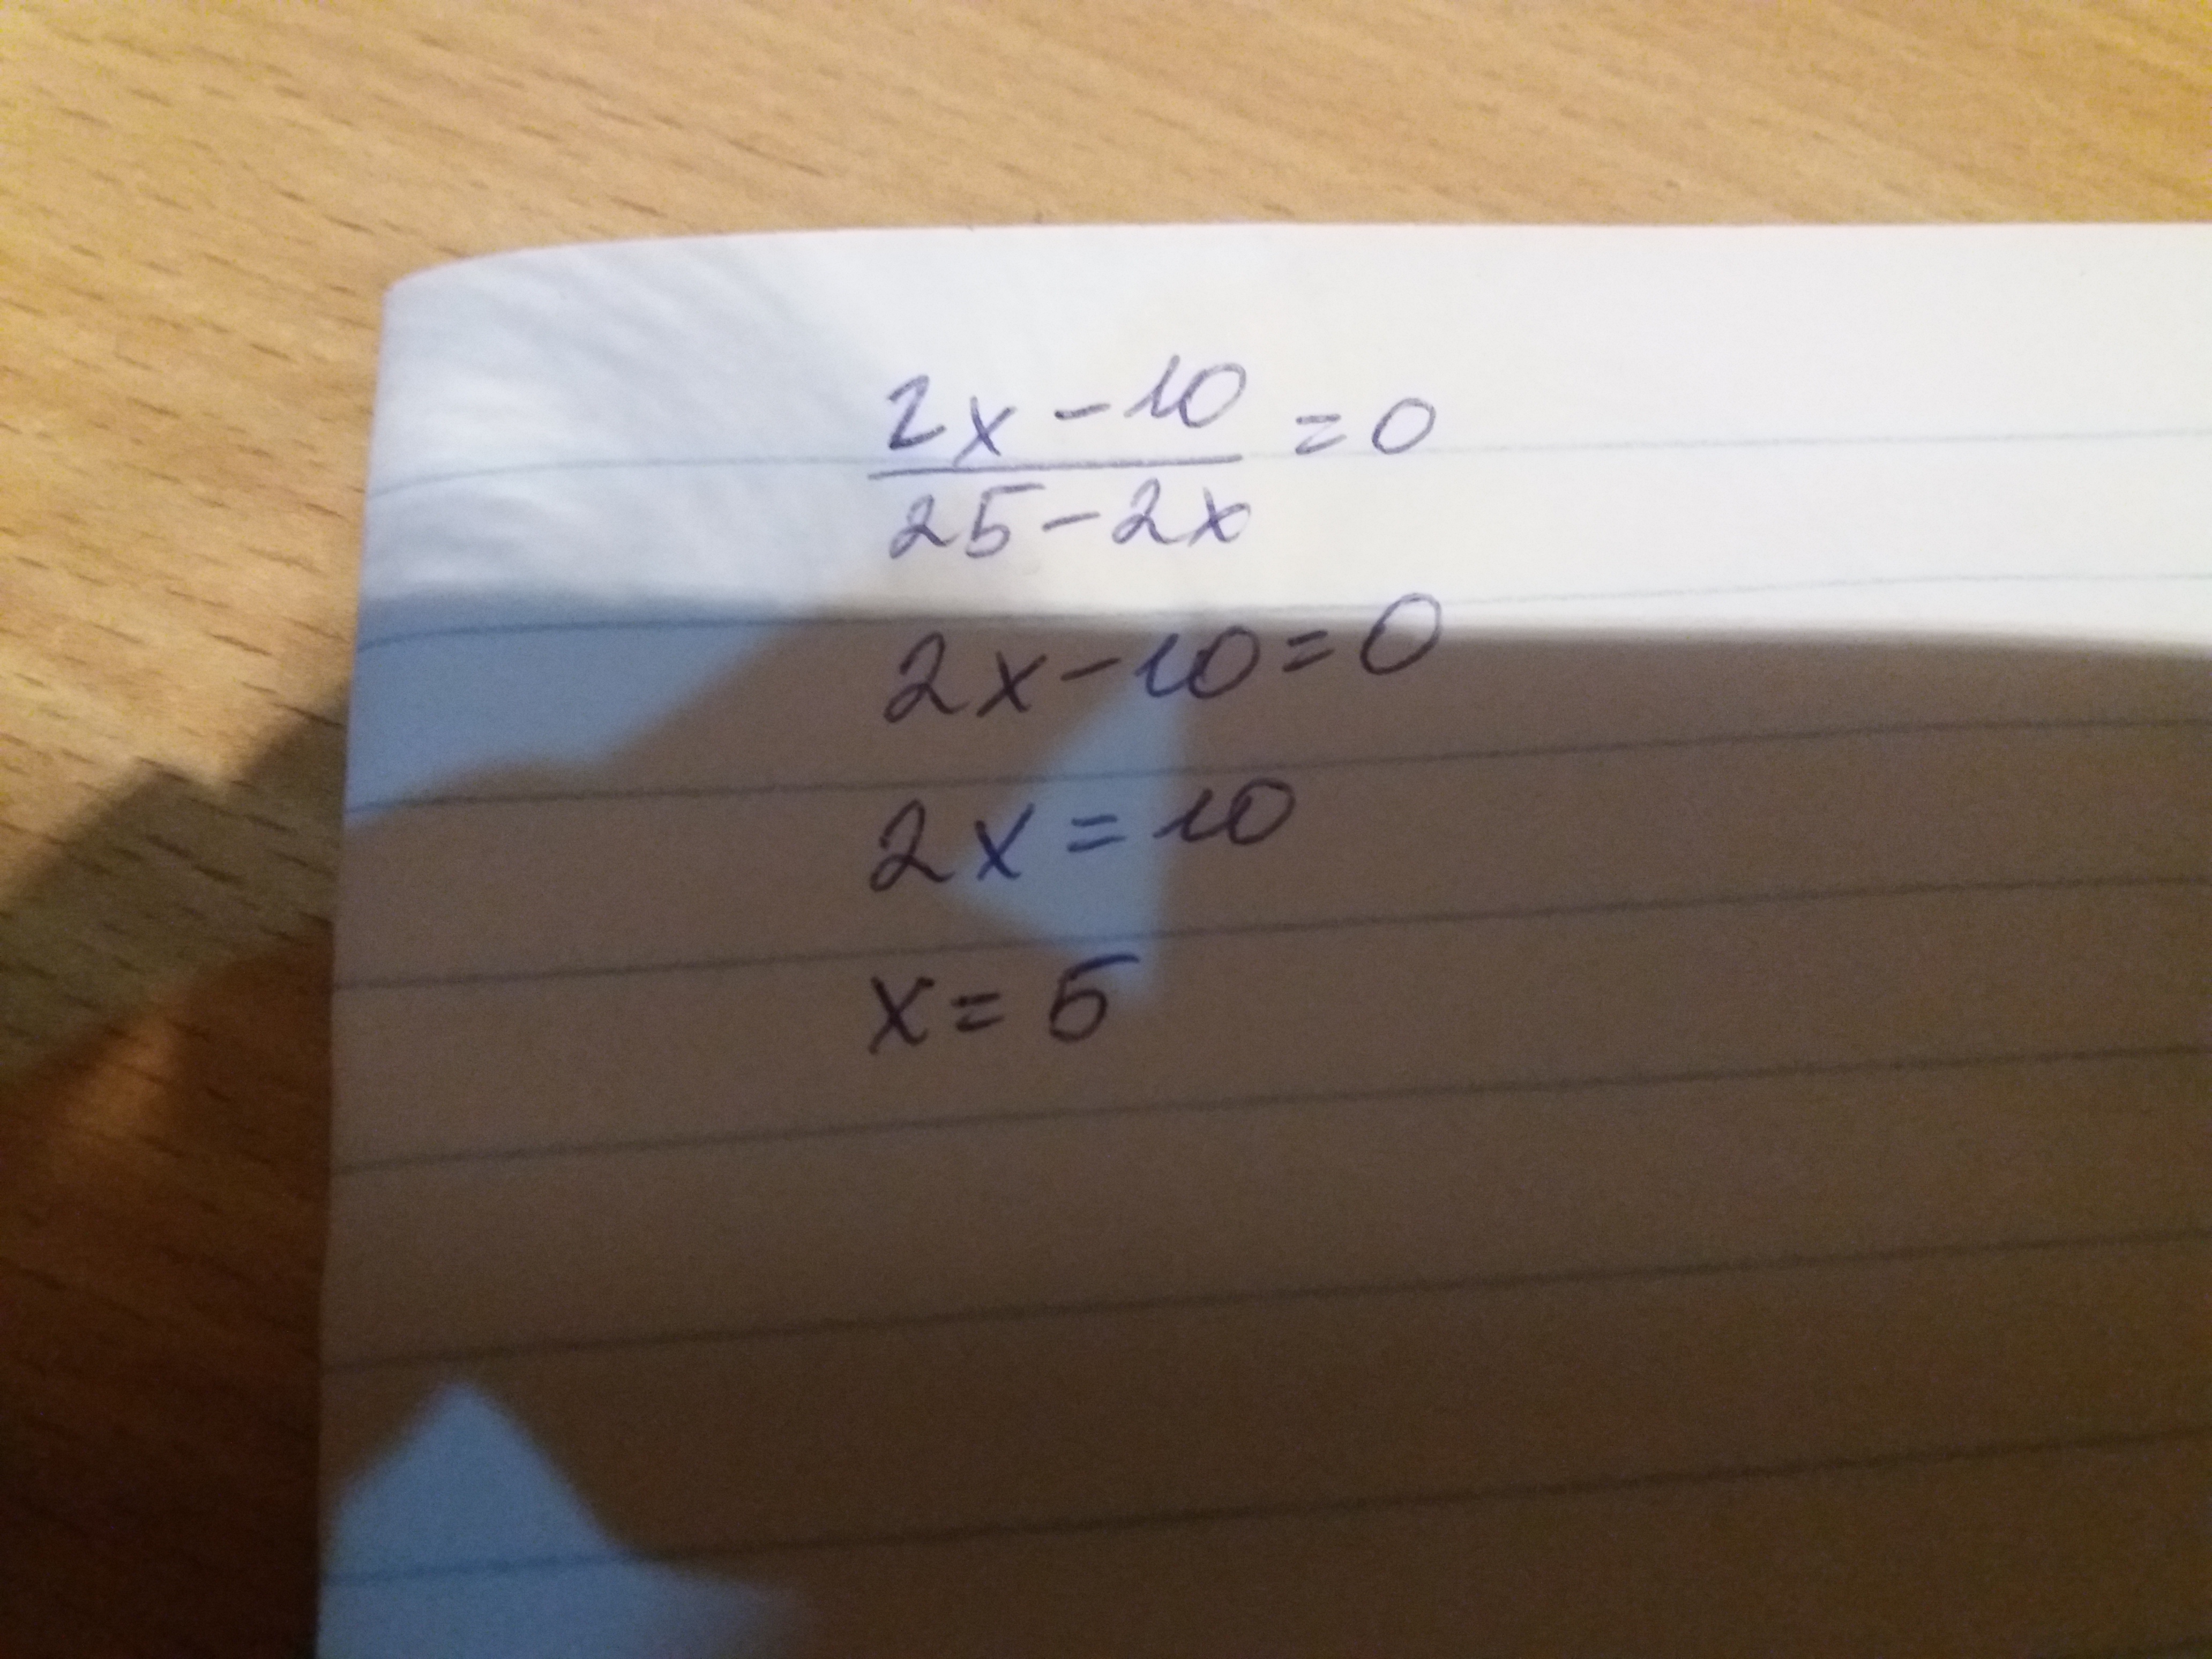 2x-10/25-2x=0
2x-10=0
2x=10
x=5